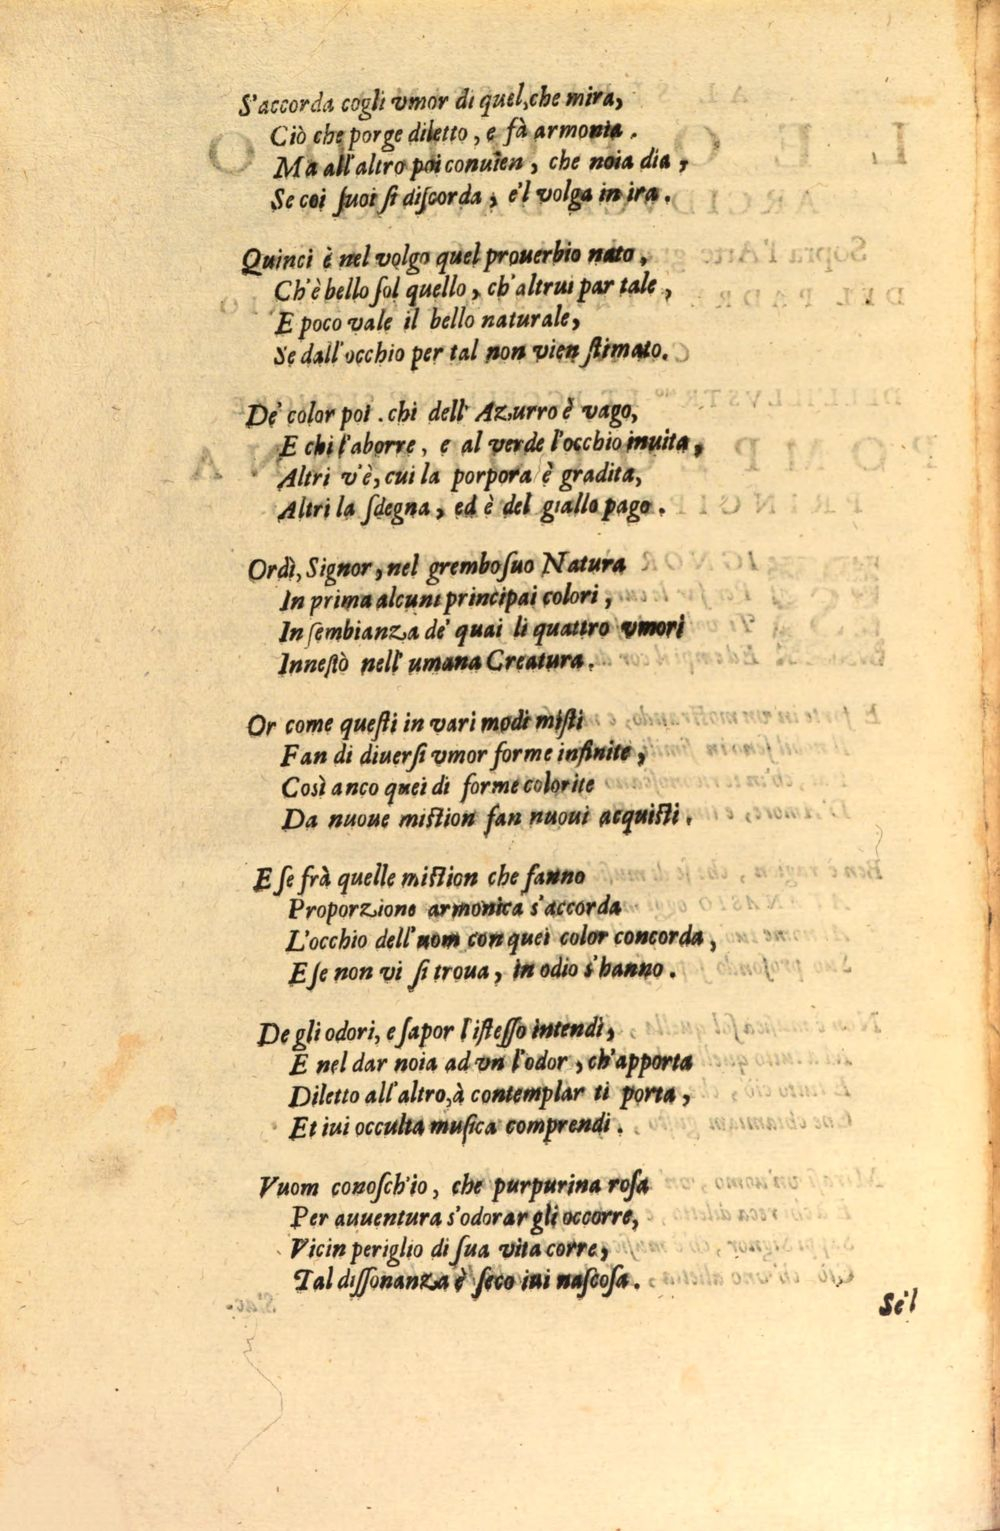 S'accorda cogli vmor di quel, che mira,
Ciò che porge diletto, e fà armonia.
Ma all'altro poi conuien, che noia dia,
Se coi ſuoi ſi diſcorda, e'l volga in ira.
Quinci è nel volgo quel prouerbio nato,
Ch'è bello ſol quello, ch'altrui par tale,
E poco vale il bello naturale,
Se dall'occhio per tal non vien ſtimato.
De' color poi. chi dell' Azurro è vago,
E chi l'aborre, e al verde l'occhio inuita,
Altri v'è, cui la porpora è gradita,
Altri la ſdegna, ed è del giallo pago.
Ordì, Signor, nel grembo ſuo Natura
In prima alcuni principai colori,
In ſembianza de' quai li quattro vmori
Inneſtò nell' umana Creatura.
Or come queſti in vari modi miſti
Fan di diuerſi vmor forme infinite,
Così anco quei di forme colorite
Da nuoue miſtion fan nuoui acquiſti.
E ſe frà quelle miſtion che fanno
Proporzione armonica s'accorda
L'occhio dell'uom con quei color concorda,
E ſe non vi ſi troua, in odio s'hanno.
De gli odori, e ſapor l'iſteſſo intendi,
E nel dar noia ad vn l'odor, ch'apporta
Diletto all'altro, à contemplar ti porta,
Et iui occulta muſica comprendi.
Vuom conoſch'io, che purpurina roſa
Per auuentura s'odorar gli occorre,
Vicin periglio di ſua vita corre,
Tal diſſonanza è ſeco iui naſcoſa.
Se'l